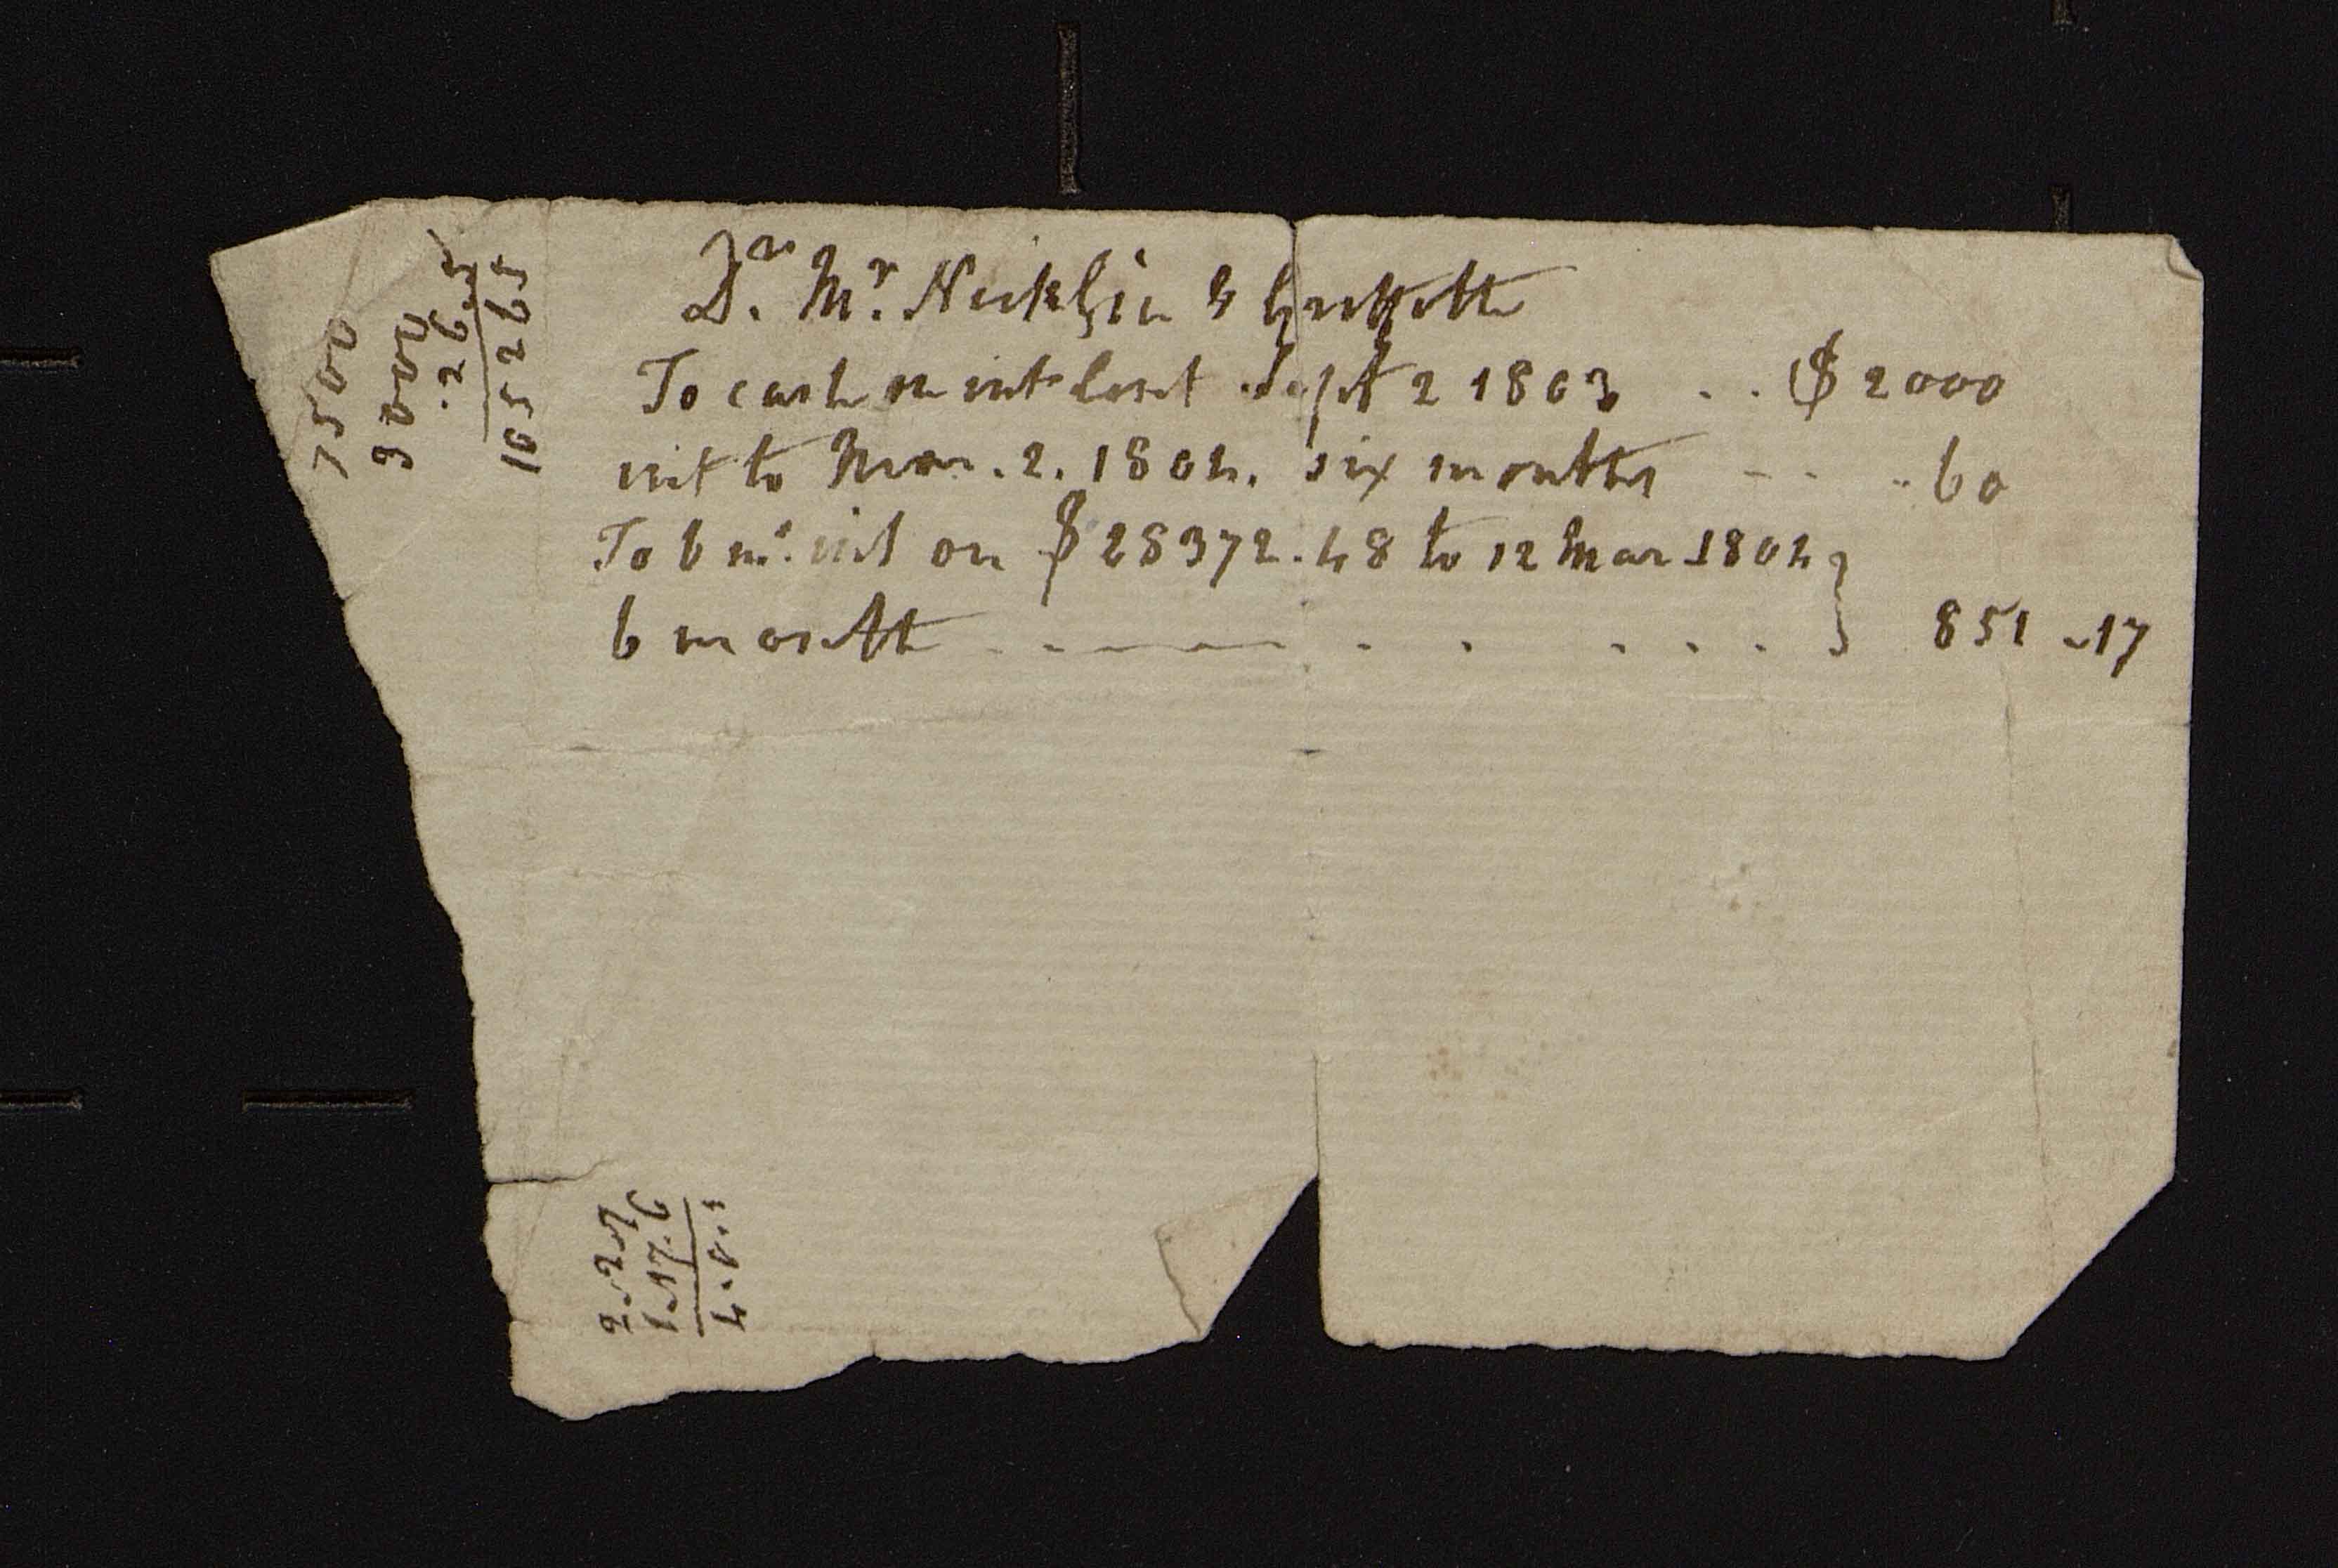 Dr. Mr. Nicklin & Griffith
To cash on int lent Sept 2 1803 . . $ 2000
int to Mar. 2. 1804. six months - - . . 60
To 6 ms. int on $ 28372.48 to 12 Mar 1804 }
6 month - - - - . . . . . } 851 - 17
7500
3000
.26.5
105265
2.25
1.57.6